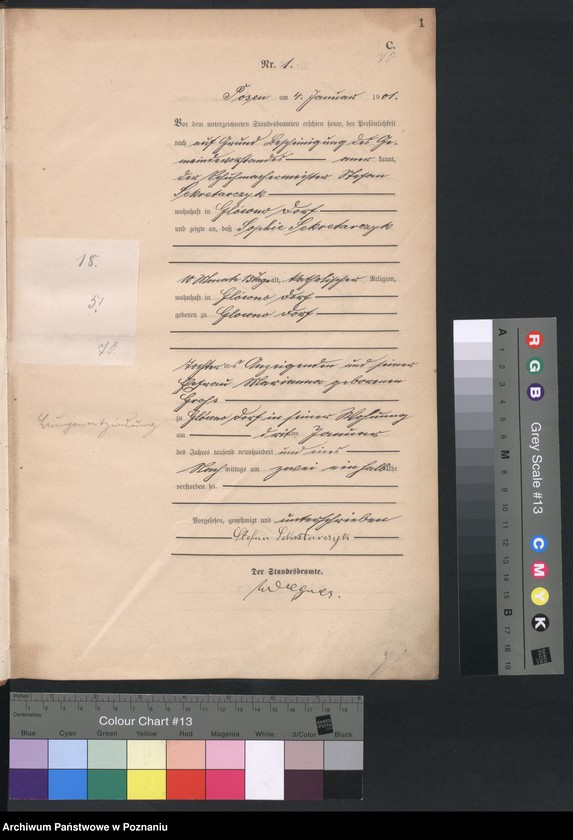 1
C.
Nr. 1.
Posen am 4. Januar 1901.
Vor dem unterzeichneten Standesbeamten erschien heute, der Persönlichkeit
nach auf Grund Bescheinigung des Ge-
meindevorstandes aner kannt,
der Schuhmachermeister Stefan
Sekretarczyk
wohnhaft in Glówno Dorf
und zeigte an, daß Sophie Sekretarczyk
10 Monate 13 Tage alt, katholischer Religion,
wohnhaft in Glówno Dorf
geboren zu Glowno Dorf
Tochter des Anzeigenden und seiner
Ehefrau Marianna geborenen
zu Glówno Dorf in seiner Wohnung
am dritten Januar
des Jahres tausend neunhundert und eins
Nach mittags um zwei einhalb Uhr
verstorben sei.
Vorgelesen, genehmigt und unterschrieben
Stefan Sekretarczyk
Der Standesbeamte.
18.
5!
Lungenentzündung
Grey Scale #13
R
G
B
C
M
Y
K
A 1 2 3 4 5 6 M 7 8 9 10 11 12 13 14 15 B 17 18 19
Inches
Centimetres
Colour Chart #13
Blue Cyan Green Yellow Red Magenta White 3/Color Black
Archiwum Państwowe w Poznaniu